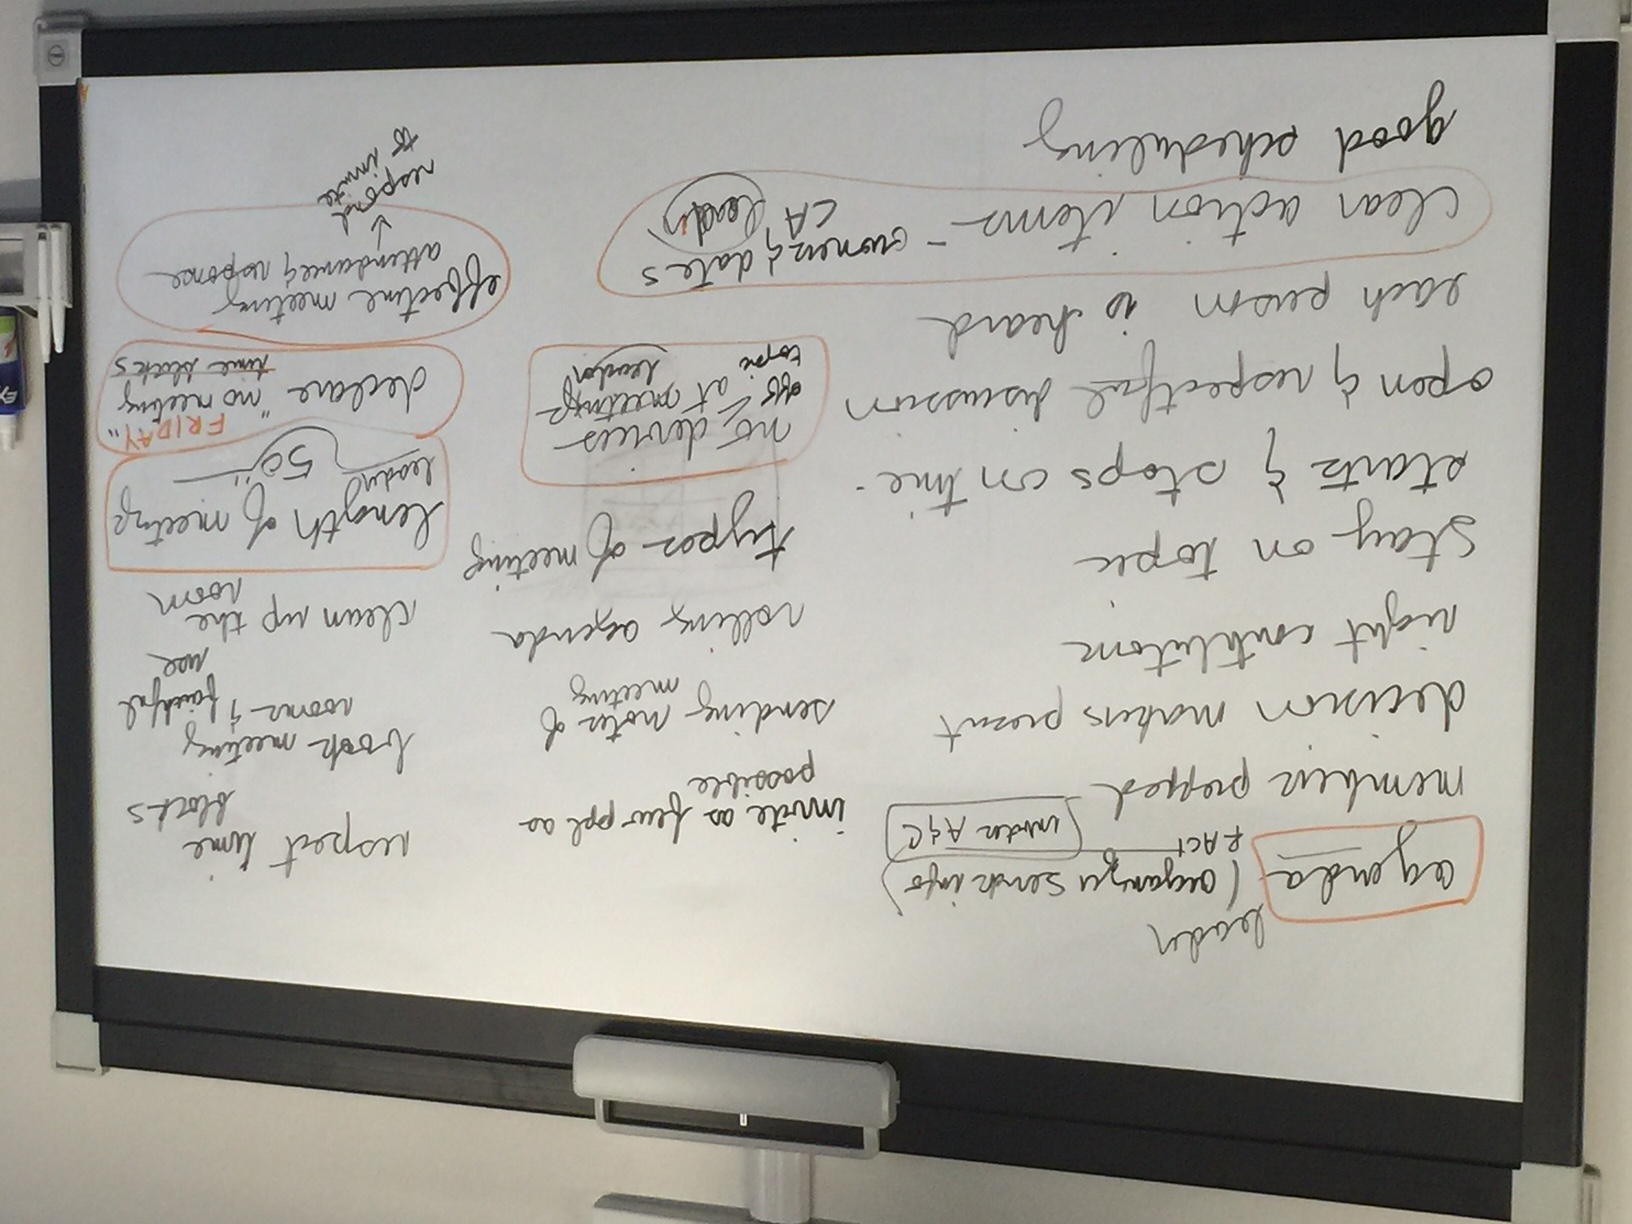 leader
agenda (organizer sends info)
RACI
invites A & C
members prepped
decision makers present
right contributors
stay on topic
starts & stops on time.
open & respectful discussion
each person is heard
clear action items - owners & dates
CA leader
good scheduling
invite as few ppl as
possible
sending notes of
meeting
rolling agenda
types of meeting
no devices
at meetings
leader
topic
respect time
blocks
book meeting
rooms & faithful
use
clean up the
room
length of meetings
leader 50"
FRIDAY"
declare "no meeting
time blocks
effective meeting
attendance & response
respond
to invite